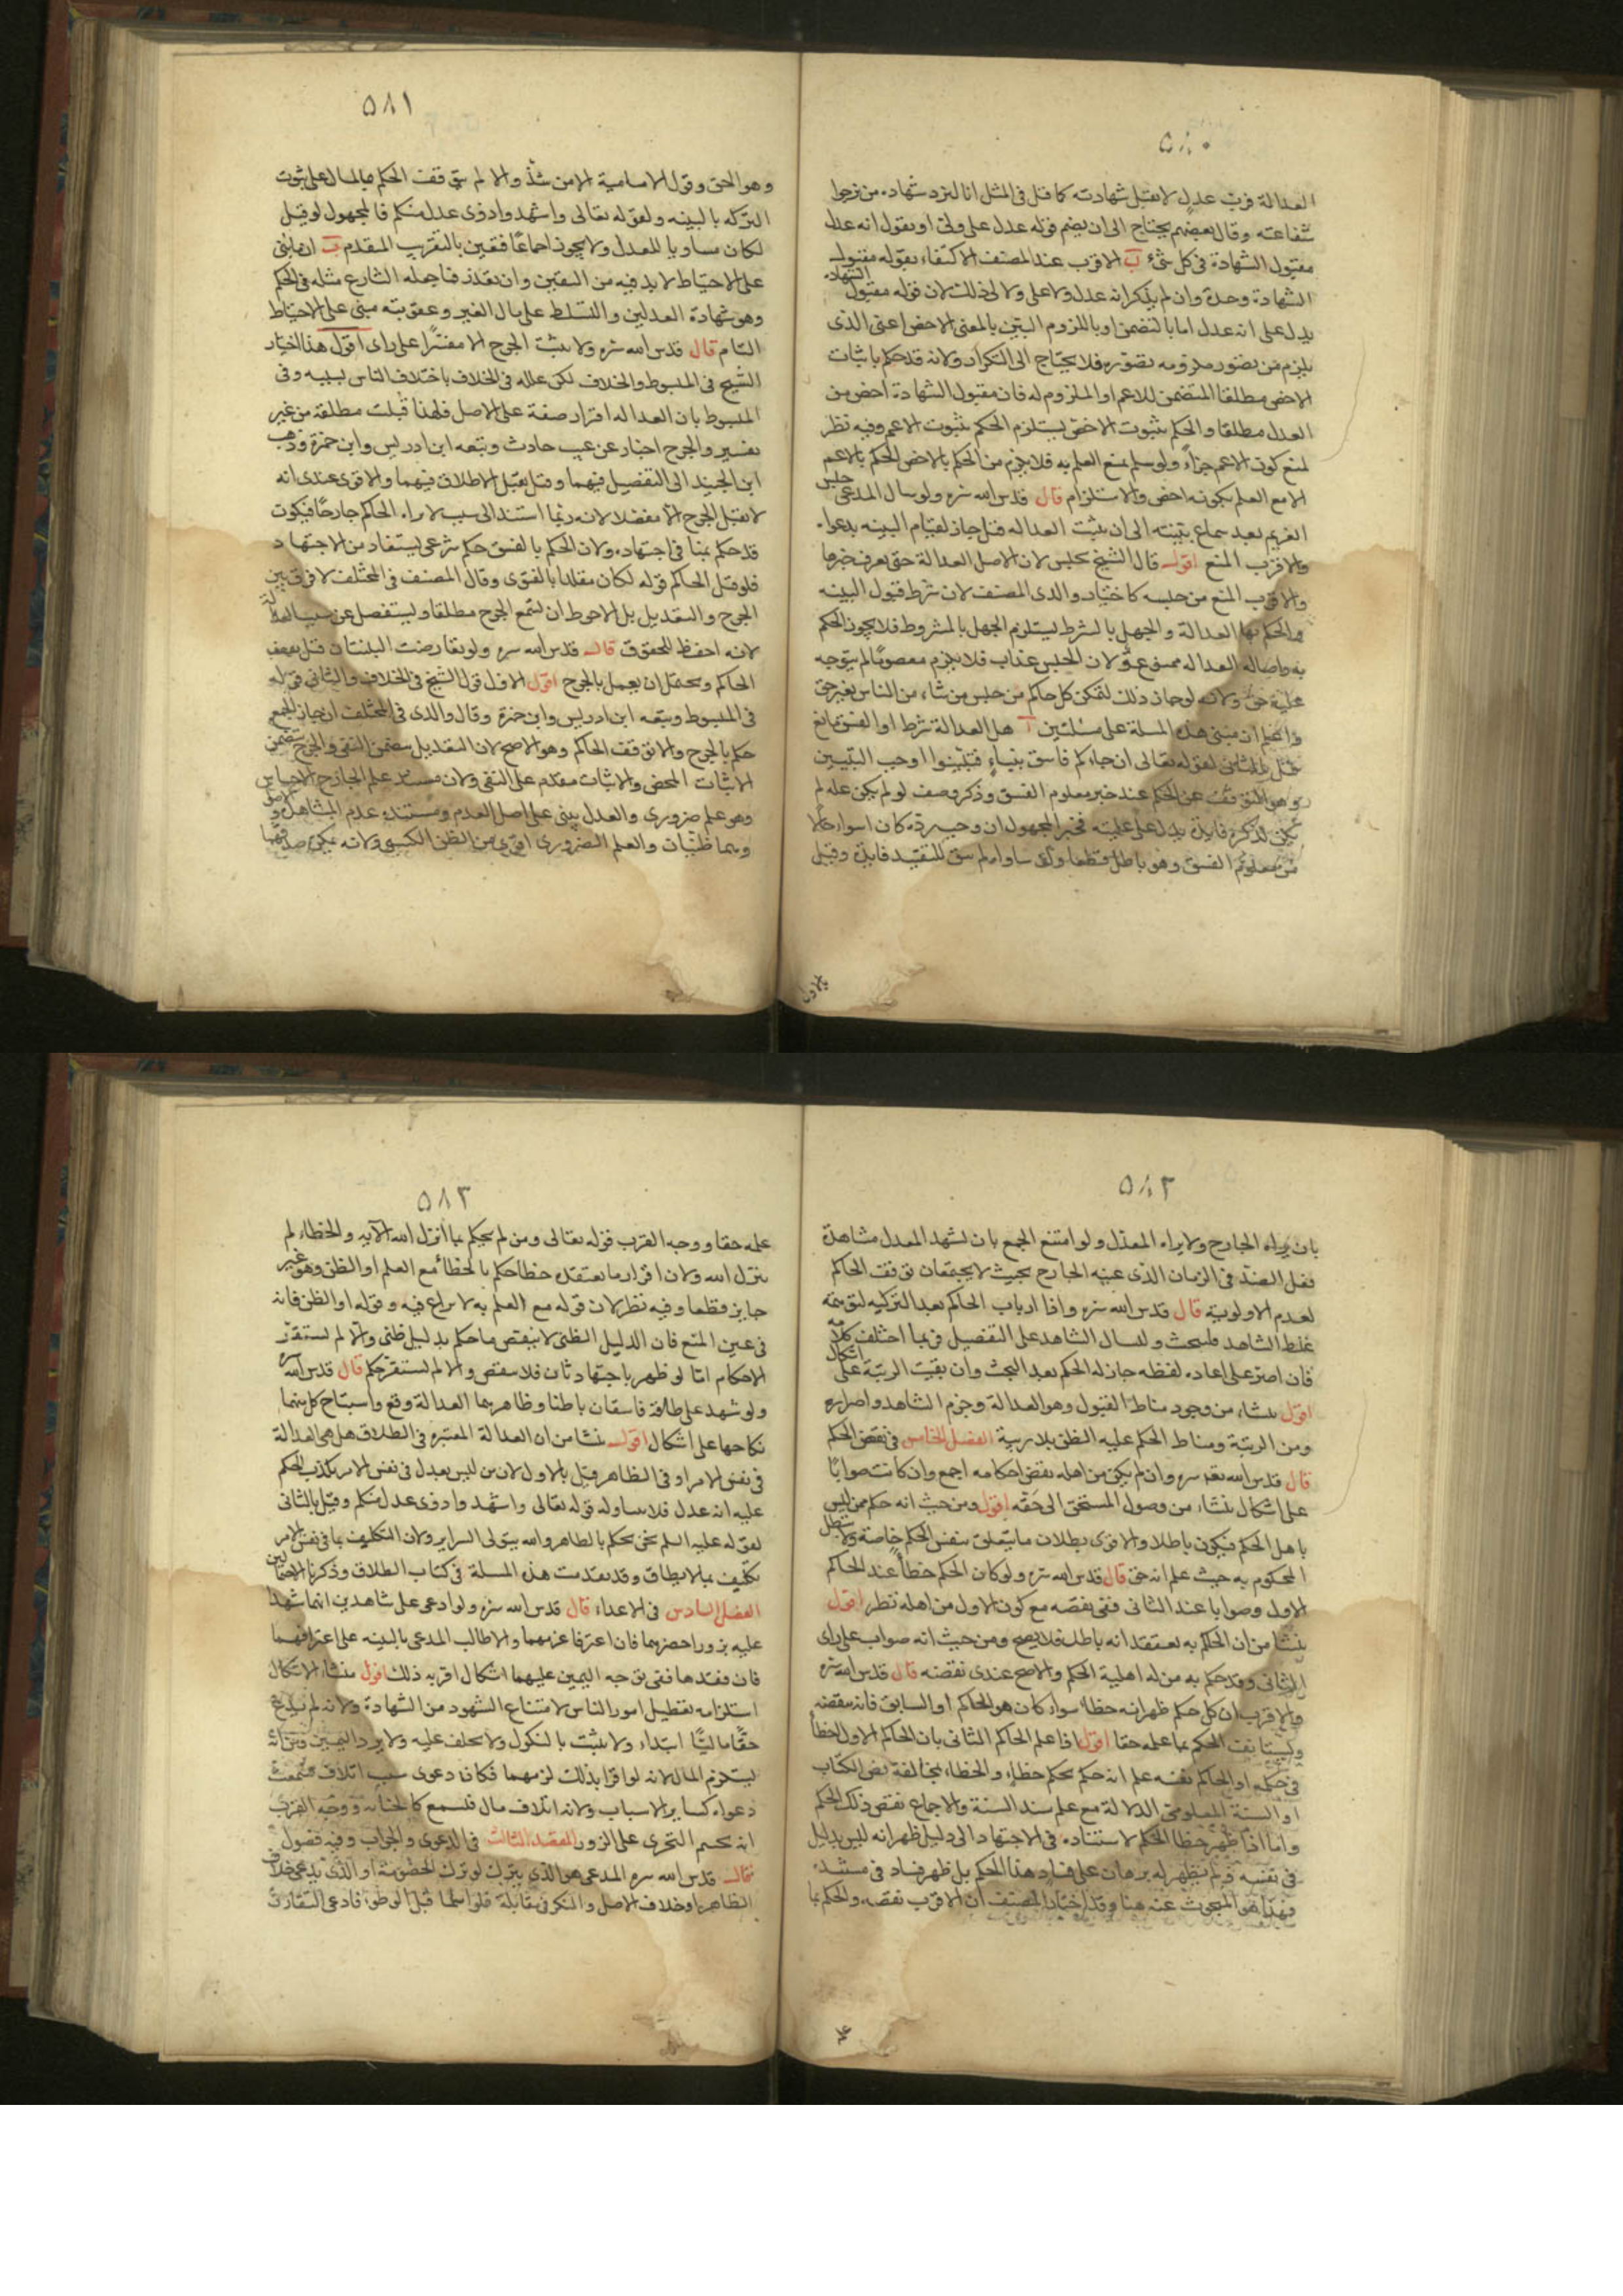 ٥٨٠
العدالة فرب عدل لا تقبل شهادته كما قيل في المثل انا لنرد شهادة من نرجوا
شفاعته وقال بعضهم يحتاج الى ان يضم قوله عدل علي ولي او يقول انه عدل
مقبول الشهادة في كل شيء ب الاقرب عند المصنف الاكتفاء بقوله مقبول
الشهادة وحده وان لم يذكر انه عدل ولا علي ولا لي وذلك لان قوله مقبول الشهادة
يدل على انه عدل اما بالتضمن او باللزوم البين بالمعنى الاخص اعني الذي
يلزم من تصور ملزومه تصوره فلا يحتاج الى التكرار ولانه قد حكم باثبات
الاخص مطلقا المتضمن للاعم او الملزوم له فان مقبول الشهادة اخص من
العدل مطلقا والحكم بثبوت الاخص يستلزم الحكم بثبوت الاعم وفيه نظر
لمنع كون الاعم جزاء ولو سلم يمنع العلم به فلا يلزم من الحكم بالاخص الحكم بالاعم
الا مع العلم بكونه اخص والاستلزام قال قدس الله سره ولو سال المدعي حبس
الغريم بعد سماع بينته الى ان يثبت العدالة قيل جاز لقيام البينه بدعواه
والاقرب المنع اقول قال الشيخ يحبس لان الاصل العدالة حتى يعرف غيرها
والاقرب المنع من حبسه كاختيار والدي المصنف لان شرط قبول البينه
والحكم بها العدالة والجهل بالشرط يستلزم الجهل بالمشروط فلا يجوز الحكم
به واصاله العدالة ممنوعة ولان الحبس عذاب فلا يلزم معصوما لم يتوجه
عليه حق ولانه لو جاز ذلك لتمكن كل حاكم من حبس من شاء من الناس بغير حق
واعلم ان مبنى هذه المسلة على مسئلتين ا هل العدالة شرط او الفسق مانع
قيل بالثاني لقوله تعالى ان جاءكم فاسق بنباء فتبينوا اوجب التبيين
وهو التوقف عن الحكم عند خبر معلوم الفسق وذكر وصف لو لم يكن علة لم
يكن لذكره فايدة يدل على عليته فخبر المجهول ان وجب رده كان اسواء حالا
من معلوم الفسق وهو باطل قطعا وان ساواه لم يبق للتقييد فايدة وقيل
بالاول
٥٨١
وهو الحق وقول الامامية الا من شذ والا لم يتوقف الحكم بالمال على ثبوت
التزكه بالبينه ولقوله تعالى واشهدوا ذوى عدل منكم فالمجهول لو قبل
لكان مساويا للمعدل ولا يجوز اجماعا فتعين بالتقريب المقدم ب ان ما بني
على الاحتياط لا بد فيه من اليقين وان تعذر فما جعله الشارع مثله في الحكم
وهو شهادة العدلين والتسلط على مال الغير وعقوبته مبني على الاحتياط
التام قال قدس الله سره ولا يثبت الجرح الا مفسرا على راى اقول هذا اختيار
الشيخ في المبسوط والخلاف لكن علله في الخلاف باختلاف الناس بسببه وفي
المبسوط بان العدالة اقرار صفة على الاصل فلهذا قبلت مطلقة من غير
تفسير والجرح اخبار عن عيب حادث وتبعه ابن ادريس وابن حمزة وذهب
ابن الجنيد الى التفصيل فيهما وقيل يقبل الاطلاق فيهما والاقوى عندى انه
لا يقبل الجرح الا مفصلا لانه ربما استند الى سبب لا يراه الحاكم جارحا فيكون
قد حكم بمنا في اجتهاده ولان الحكم بالفسق حكم شرعي يستفاد من الاجتهاد
فلو قبل الحاكم قوله لكان مقلدا بالفتوى وقال المصنف في المختلف لا فرق بين
الجرح والتعديل بل الاحوط ان يسمع الجرح مطلقا ويستفصل عن سبب العدالة
لانه احفظ للحقوق قال قدس الله سره ولو تعارضت البينتان قيل يقف
الحاكم ويحتمل ان يعمل بالجرح اقول الاول قول الشيخ في الخلاف والثاني قوله
في المبسوط وتبعه ابن ادريس وابن حمزة وقال والدى في المختلف ان جاز الجمع
حكم بالجرح والا توقف الحاكم وهو الاصح لان التعديل يتضمن النفي والجرح يتضمن
الاثبات المحض والاثبات مقدم على النفي ولان مستند علم الجارح الاحساس
وهو علم ضرورى والعدل يبنى على اصل العدم ومستنده عدم المشاهدة والاصل
وهما ظنيان والعلم الضرورى اقوى من الظن الكسبي ولانه يمكن صدقهما
٥٨٢
بان يراه الجارح ولا يراه المعدل ولو امتنع الجمع بان يشهد المعدل مشاهدة
فعل الضد في الزمان الذى عينه الجارح بحيث لا يجتمعان توقف الحاكم
لعدم الاولوية قال قدس الله سره واذا ارتاب الحاكم بعد التزكيه لتوهمه
غلط الشاهد فليبحث وليسال الشاهد على التفصيل فربما اختلف كلامه
فان اصر على اعاده لفظه جاز له الحكم بعد البحث وان بقيت الريبة على اشكال
اقول ينشاء من وجود مناط القبول وهو العدالة وجزم الشاهد واصراره
ومن الريبة ومناط الحكم عليه الظن بلا ريبة الفصل الخامس في نقض الحكم
قال قدس الله سره وان لم يكن من اهله نقض احكامه اجمع وان كانت صوابا
على اشكال ينشاء من وصول المستحق الى حقه اقول ومن حيث انه حكم ممن ليس
باهل الحكم فيكون باطلا والاقوى بطلان ما يتعلق بنفس الحكم خاصة ولا يبطل
المحكوم به حيث علم انه حق قال قدس الله سره ولو كان الحكم خطأ عند الحاكم
الاول وصوابا عند الثاني ففي نقضه مع كون الاول من اهله نظر اقول
ينشا من ان الحاكم به يعتقد انه باطل فلا يصح ومن حيث انه صواب على راى
الثاني وقد حكم به من له اهلية الحكم والاصح عندى نقضه قال قدس الله سره
والاقرب ان كل حكم ظهر انه خطأ سواء كان هو الحاكم او السابق فانه ينقضه
ويستانف الحكم بما علمه حقا اقول اذا علم الحاكم الثاني بان الحاكم الاول اخطأ
في حكمه او الحاكم نفسه علم انه حكم بحكم خطاء والخطاء بمخالفة نص الكتاب
او السنة المعلومتى الدلالة مع علم سند السنة والاجماع نقض ذلك الحكم
واما اذا ظهر خطا الحكم لاستناده في الاجتهاد الى دليل ظهر انه ليس بدليل
في نفسه ولم يظهر له برهان على فساد هذا الحكم بل ظهر فساد في مستنده
فهذا هو المبحوث عنه هنا وقد اختار المصنف ان الاقرب نقضه والحكم بما
علمه
٥٨٣
علمه حقا ووجه القرب قوله تعالى ومن لم يحكم بما انزل الله الآيه والخطاء لم
ينزل الله ولان اقرار ما يعتقده خطا حكم بالخطأ مع العلم او الظن وهو غير
جايز قطعا وفيه نظر لان قوله مع العلم به لا نزاع فيه وقوله او الظن فانه
في عين المنع فان الدليل الظني لا ينقض ما حكم بدليل ظني والا لم تستقر
الاحكام اما لو ظهر باجتهاد ثان فلا ينقض والا لم يستقر حكم قال قدس الله سره
ولو شهد على طلاقه فاسقان باطنا وظاهرهما العدالة وقع واستباح كل منهما
نكاحها على اشكال اقول ينشا من ان العدالة المعتبره في الطلاق هل هي العدالة
في نفس الامر او في الظاهر قيل بالاول لان من ليس بعدل في نفس الامر يكذب الحكم
عليه انه عدل فلا يتناوله قوله تعالى واشهدوا ذوى عدل منكم وقيل بالثاني
لقوله عليه السلم نحن نحكم بالظاهر والله يتولى السراير ولان التكليف بما في نفس الامر
تكليف بما لا يطاق وقد تقدمت هذه المسلة في كتاب الطلاق وذكرنا الاحتمالين
الفصل السادس في الاعداء قال قدس الله سره ولو ادعى على شاهدين انهما شهدا
عليه بزور احضرهما فان اعترفا غرمهما والا طالب المدعي بالبينه على اعترافهما
فان فقدها ففي توجه اليمين عليهما اشكال اقربه ذلك اقول منشاء الاشكال
استلزامه تعطيل امور الناس لامتناع الشهود من الشهادة ولانه لم يدع
حقا ماليا ابتداء ولا يثبت بالنكول ولا يحلف عليه ولا يرد اليمين ومن انه
يستلزم المال لانه لو اقرا بذلك لزمهما فكان دعوى سبب اتلاف فتسمع
دعواه كساير الاسباب ولانه اتلاف مال فتسمع كالجناية ووجه القرب
انه يحسم التجرى على الزور المقصد الثالث في الدعوى والجواب وفيه فصول
قال قدس الله سره المدعي هو الذى يترك لو ترك الخصومة او الذى يدعي خلاف
الظاهر او خلاف الاصل والمنكر في مقابلة فلو اسلما قبل الوطئ فادعى التقارن